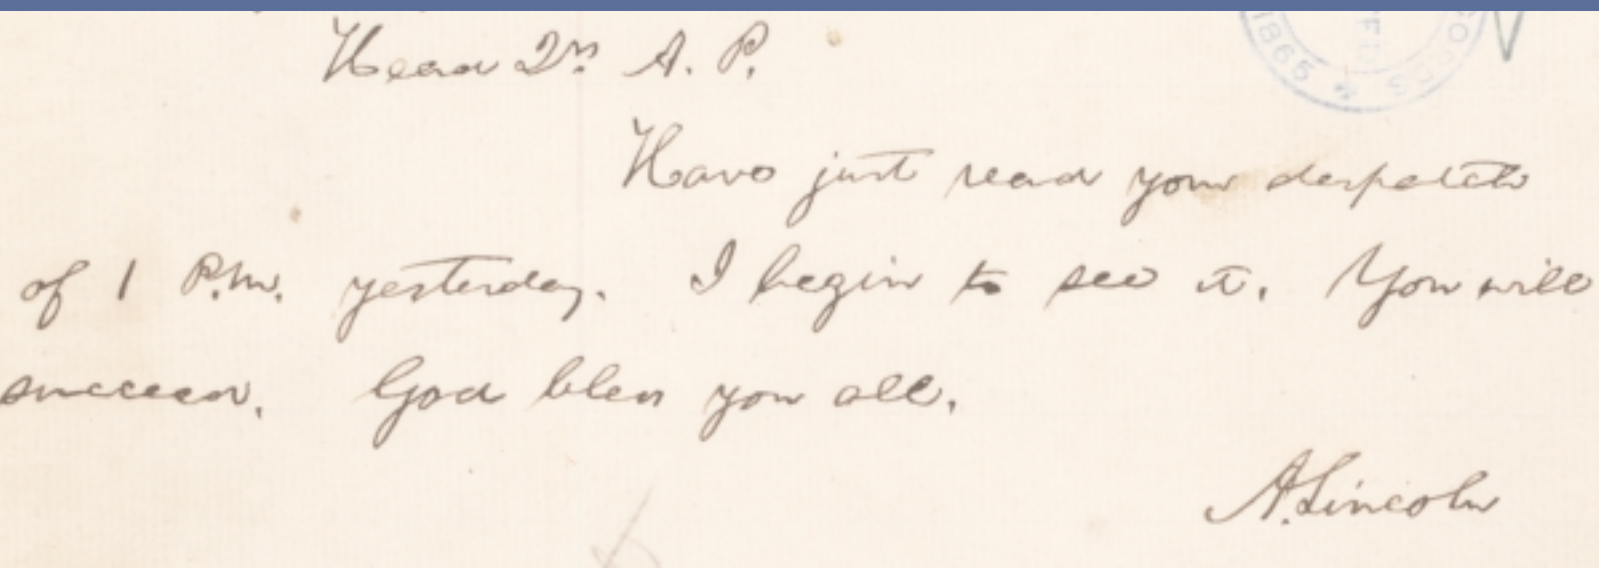 Head Qrs A. P.
Have just read your despatch
of 1 P.M. yesterday. I begin to see it. You will
succeed. God bless you all.
A. Lincoln
1865